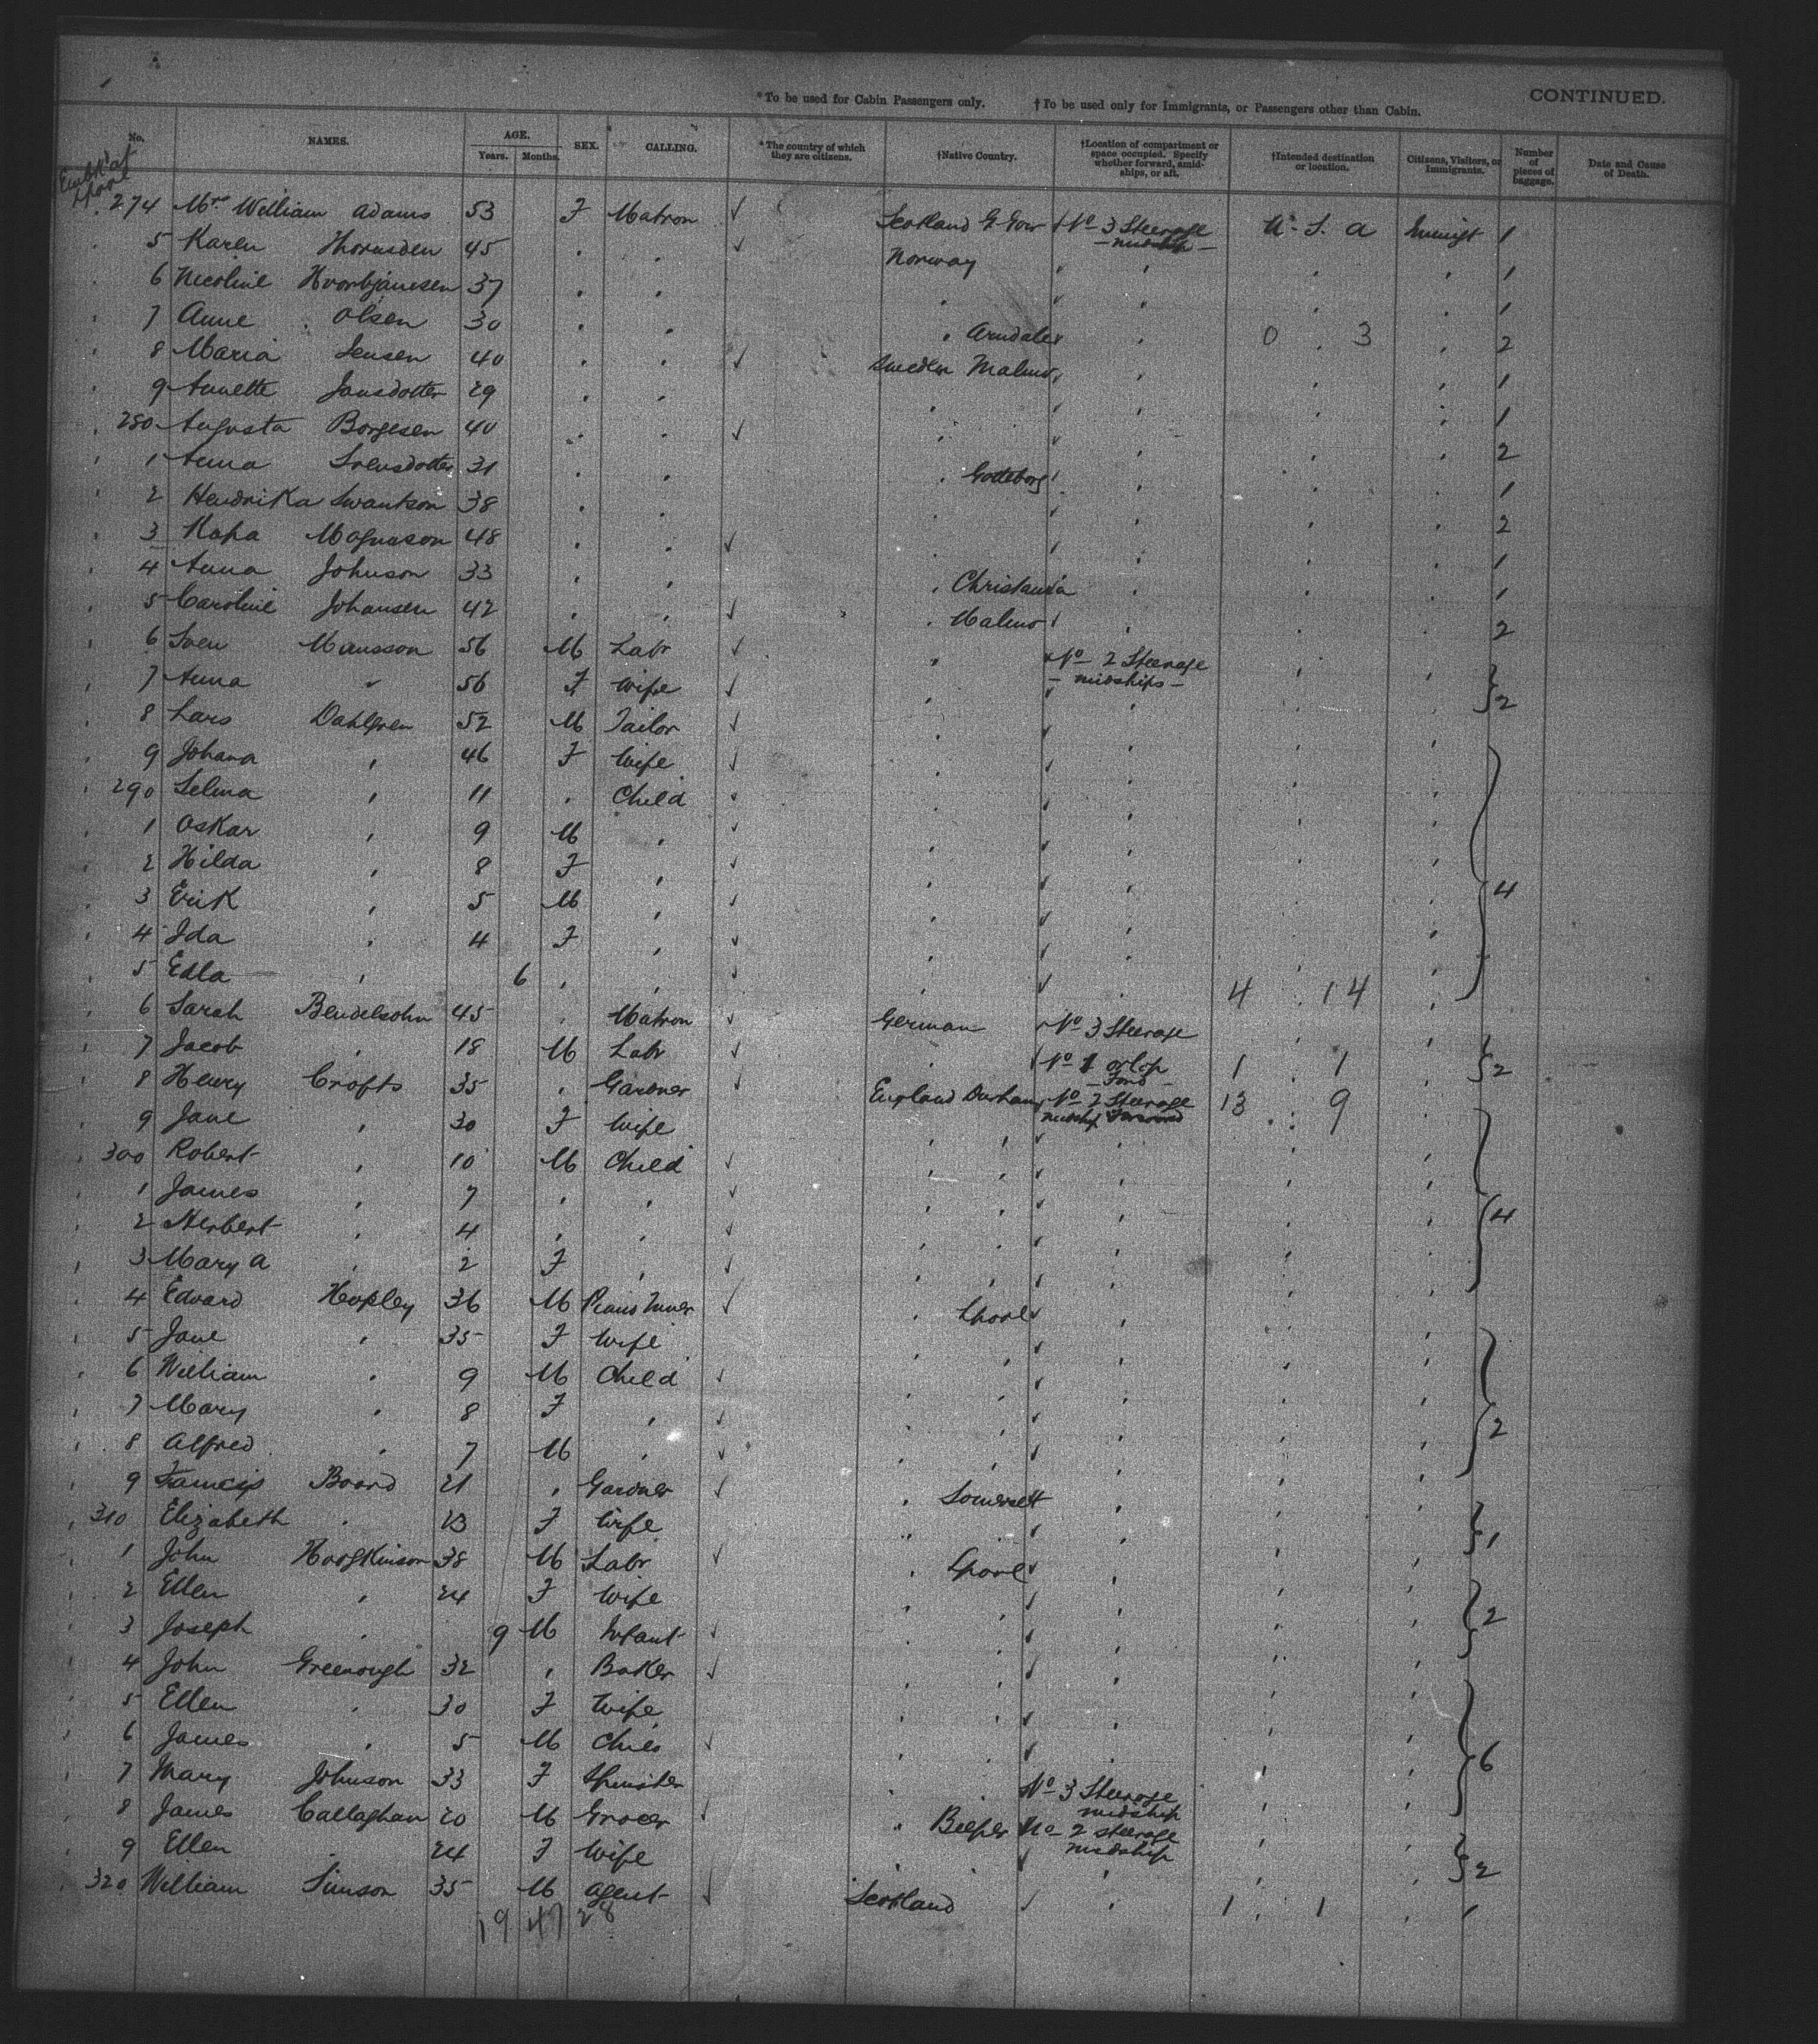 *To be used for Cabin Passengers only. †To be used only for Immigrants, or Passengers other than Cabin. CONTINUED.
No. NAMES. AGE. Years. Months. SEX. CALLING. *The country of which they are citizens. †Native Country. †Location of compartment or space occupied. Specify whether forward, amidships, or aft. †Intended destination or location. Citizens, Visitors, or Immigrants. Number of pieces of baggage. Date and Cause of Death.
Embk'd at
274 Mrs William Adams 53 F Matron Scotland No 3 Steerage U. S. A 1
midship
5 Karen 45 " " Norway " " " 1
6 Nicoline 37 " " " " " " 1
7 Anne Olsen 30 " " " Arndale " 0 . 3 " 2
8 Maria Jensen 40 " " Sweden Malmo " " " 1
9 Annette Jansdotter 29 " " " " " " 1
280 Augusta Borgesen 40 " " " " " " 2
1 Anna Svensdotter 31 " " " Gotteborg " " " 1
2 Hendrika Swantson 38 " " " " " " 2
3 Magnuson 48 " " " " " " 1
4 Anna Johnson 33 " " " Christiania " " " 1
5 Caroline Johansen 42 " " " Malmo " " " 2
6 Sven Mansson 56 M Labr " No 2 Steerage " "
7 Anna " 56 F Wife " midships " " 2
8 Lars Dahlgren 52 M Tailor " " " "
9 Johana " 46 F Wife " " " "
290 Selma " 11 " Child " " " "
1 Oskar " 9 M " " " " "
2 Hilda " 8 F " " " " "
3 Erik " 5 M " " " " " 4
4 Ida " 4 F " " " " "
5 Edla " 6 " " " " 4 . 14 "
6 Sarah Bendelsohn 45 " Matron German No 3 Steerage " "
7 Jacob " 18 M Labr " No 1 orlop 1 . 1 " 2
8 Henry Crofts 35 " Gardner England Durham No 2 Steerage 13 . 9 "
9 Jane " 30 F Wife " " " " "
300 Robert " 10 M Child " " " " "
1 James " 7 " " " " " " "
2 Herbert " 4 " " " " " " " 4
3 Mary A " 2 F " " " " " "
4 Edward Hopley 36 M Piano Tuner " Lpool " " "
5 Jane " 35 F Wife " " " " "
6 William " 9 M Child " " " " "
7 Mary " 8 F " " " " " "
8 Alfred " 7 M " " " " " " 2
9 Francis Board 21 " Gardner " Somersett " " "
310 Elizabeth " 23 F Wife " " " " " 1
1 John Hodgkinson 38 M Labr " Lpool " " "
2 Ellen " 24 F Wife " " " " " 2
3 Joseph " 9 M Infant " " " " "
4 John Greenough 32 " Baker " " " " "
5 Ellen " 30 F Wife " " " " "
6 James " 5 M Child " " " " " 6
7 Mary Johnson 33 F Spinster " No 3 Steerage " "
midship
8 James Callaghan 20 M Grocer " No 2 steerage " "
midship
9 Ellen " 24 F Wife " " " " 2
320 William Simson 35 M Agent Scotland " 1 . 1 " 1
19 47 28